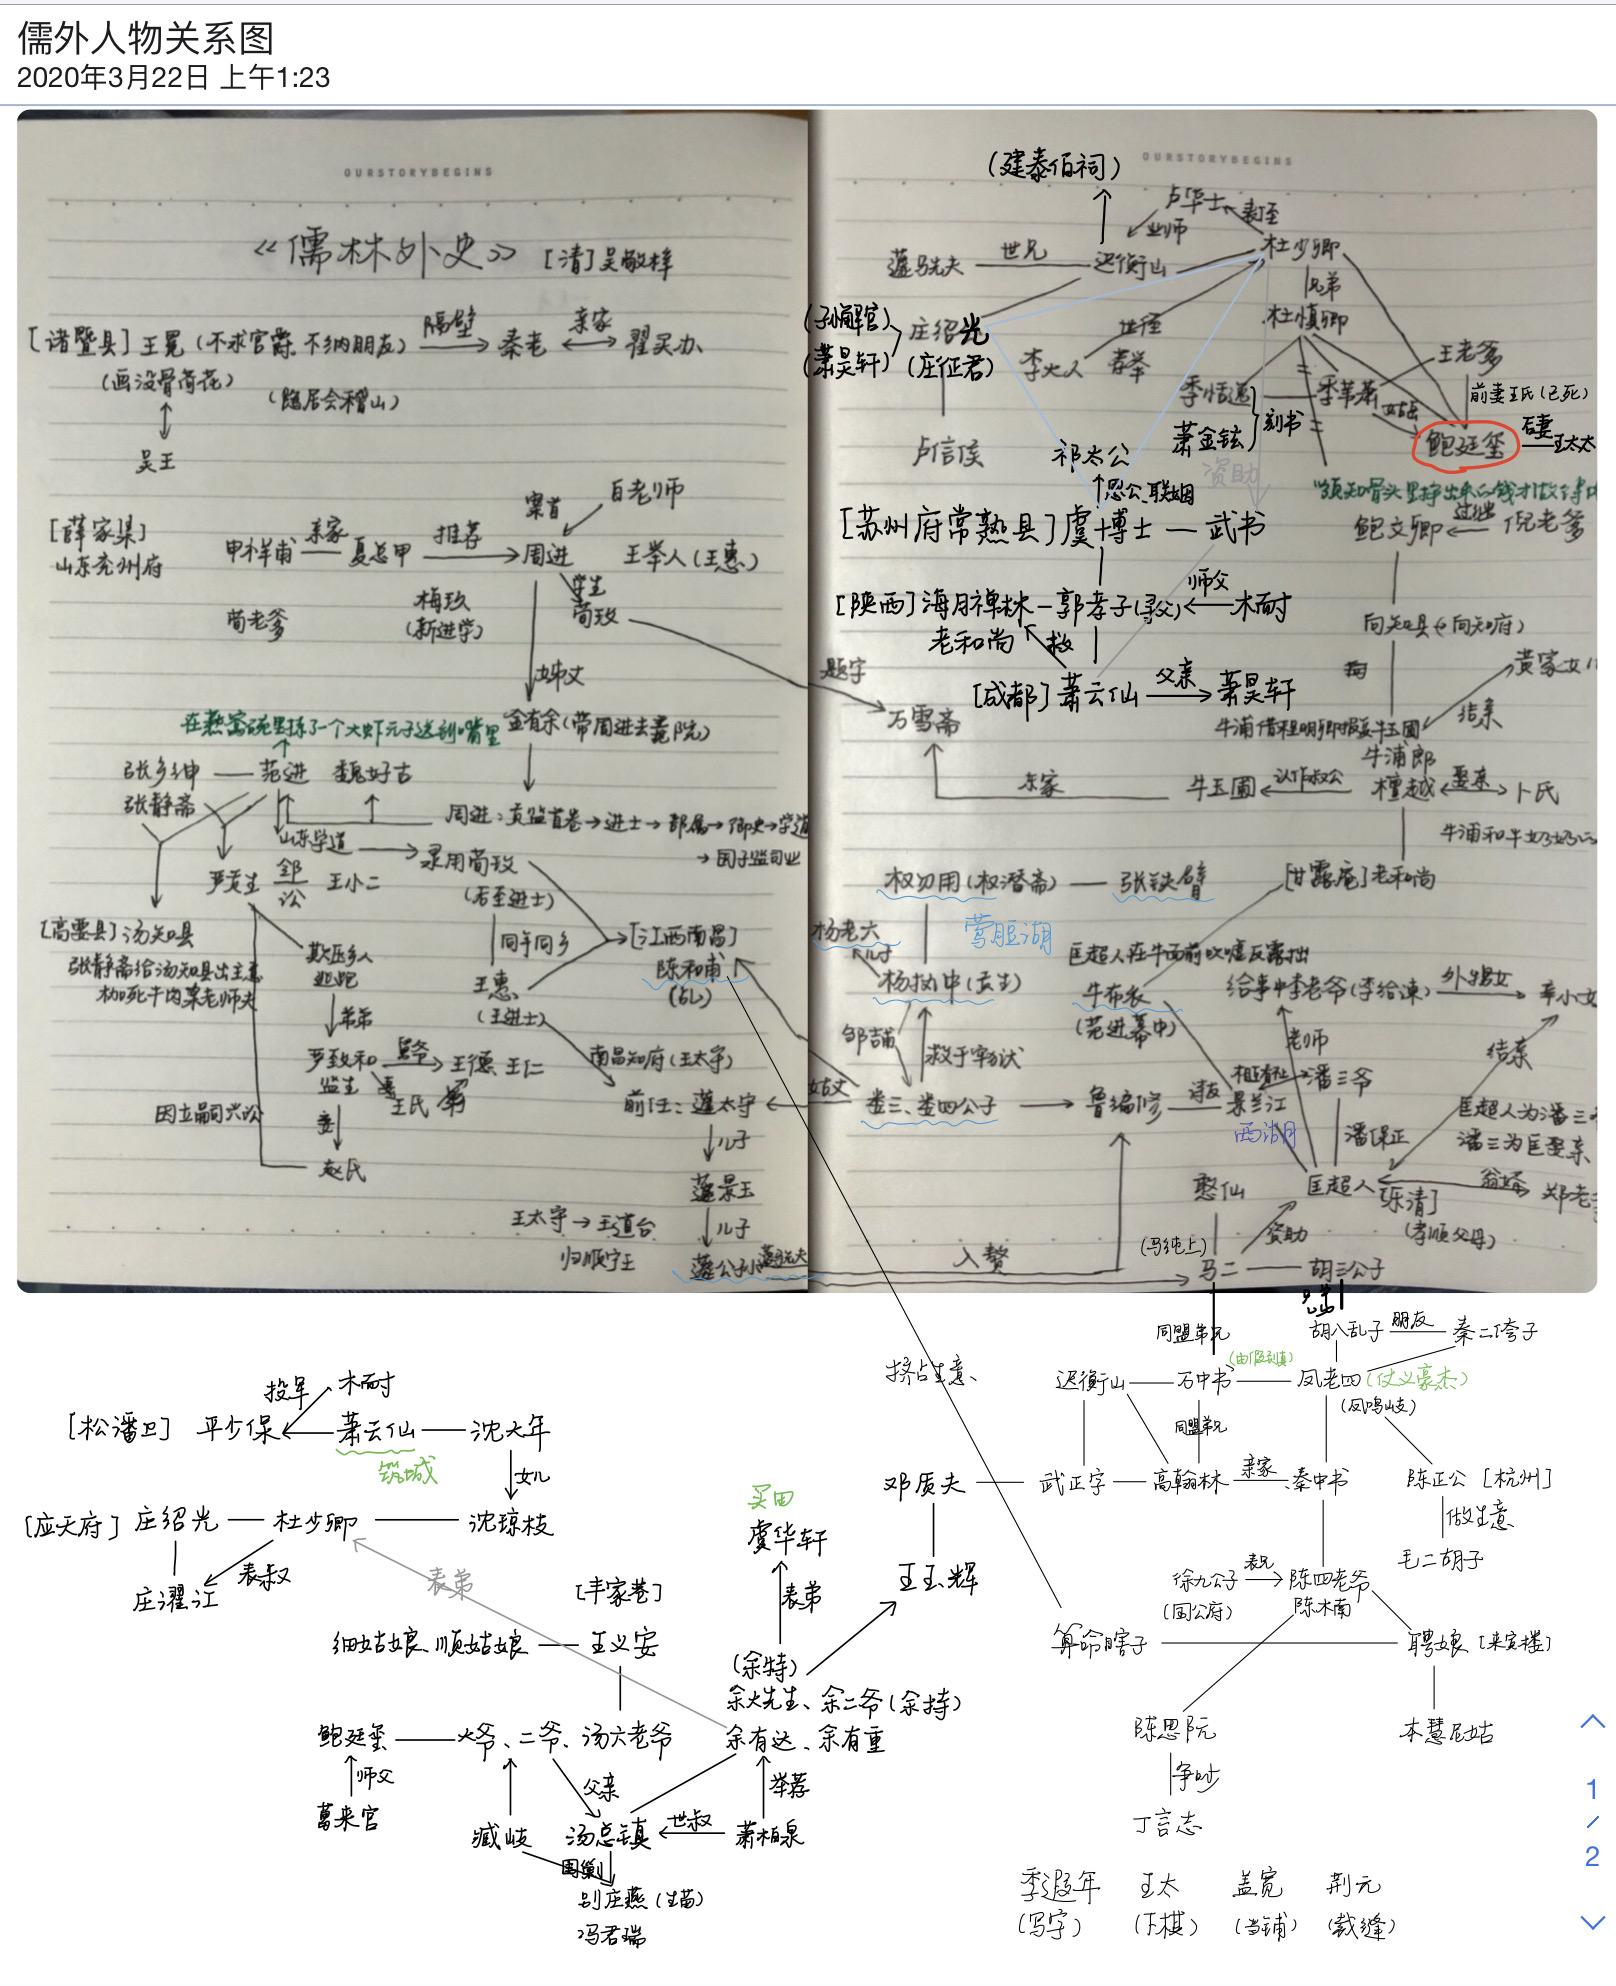 儒外人物关系图
2020年3月22日 上午1:23
OURSTORYBEGINS
《儒林外史》 [清]吴敬梓
[诸暨县]王冕(不求官爵、不纳朋友) 隔壁 秦老 亲家 翟买办
(画没骨荷花)
(隐居会稽山)
吴王
[薛家集]
山东兖州府
申祥甫 亲家 夏总甲 推荐 周进 王举人(王惠)
案首 白老师
荀老爹
梅玖
(新进学)
学生
荀玖
姊丈
金有余(带周进去贡院)
张乡绅 范进 魏好古
张静斋
周进:贡监首卷→进士→部属→御史→学道
→国子监司业
山东学道 录用荀玫
(后至进士)
严贡生 邻 讼 王小二
同年同乡
[江西南昌]
陈和甫
(乩)
[高要县]汤知县
张静斋给汤知县出主意
枷死牛肉案老师夫
欺压乡人
逃跑
弟弟
王惠
(王进士)
严致和 监生
王德、王仁
妻
王氏
南昌知府(王太守)
前任:蘧太守
因立嗣兴讼
妾
赵氏
儿子
蘧景玉
儿子
王太守→王道台
归顺宁王
蘧公孙 蘧駪夫
OURSTORYBEGINS
(建泰伯祠)
卢华士 表侄
业师
蘧駪夫 世兄 迟衡山 杜少卿
兄弟
杜慎卿
(萧昊轩)
庄绍光
(庄征君)
李大人 世侄 荐举
季恬逸 季苇萧
萧金铉
刻书
王老爹
前妻王氏(已死)
鲍廷玺 后妻 王太太
卢信侯
祁太公
恩公、联姻
资助
鲍文卿 过继 倪老爹
[苏州府常熟县]虞博士 — 武书
[陕西]海月禅林 — 郭孝子(寻父) 师父 木耐
老和尚 救
[成都]萧云仙 父亲 萧昊轩
向知县(向知府)
题字
万雪斋
黄家女儿
结亲
牛浦郎
东家 牛玉圃 认作叔公 檀越 娶亲 卜氏
权勿用(权潜斋) — 张铁臂
[甘露庵]老和尚
莺脰湖
杨老六
儿子
杨执中(贡生)
匡超人在牛面前吹嘘反露拙
牛布衣
(范进幕中)
给事中李老爷(李给谏) 外甥女 辛小女
邹吉甫
救于牢狱
老师
结亲
姑丈 娄三、娄四公子 鲁编修 诗友 景兰江
西湖
潘三爷
潘保正
匡超人为潘三
潘三为匡娶亲
匡超人
[乐清]
(孝顺父母)
翁婿 郑老
憨仙
(马纯上)
资助
入赘
马二 胡三公子
兄弟
同盟弟兄
胡八乱子 朋友 秦二侉子
挤占生意、
迟衡山 — 万中书 (由假到真) — 凤老四(仗义豪杰)
(凤鸣岐)
同盟弟兄
邓质夫 — 武正字 — 高翰林 亲家 秦中书 陈正公[杭州]
做生意
毛二胡子
王玉辉
徐九公子 表兄 陈四老爷
(国公府) 陈木南
算命瞎子 聘娘[来宾楼]
陈思阮
争吵
丁言志
本慧尼姑
季遐年 王太 盖宽 荆元
(写字) (下棋) (当铺) (裁缝)
投军 木耐
[松潘卫] 平少保 萧云仙 — 沈大年
筑城
女儿
[应天府]庄绍光 — 杜少卿 — 沈琼枝
表叔
庄濯江
表弟
买田
虞华轩
表弟
[丰家巷]
细姑娘、顺姑娘 — 王义安
(余特)
余大先生、余二爷(余持)
余有达、余有重
鲍廷玺 — 大爷、二爷、汤六老爷
师父
葛来官
父亲
举荐
臧岐 汤总镇 世叔 萧柏泉
别庄燕(生苗)
冯君瑞
1
/
2